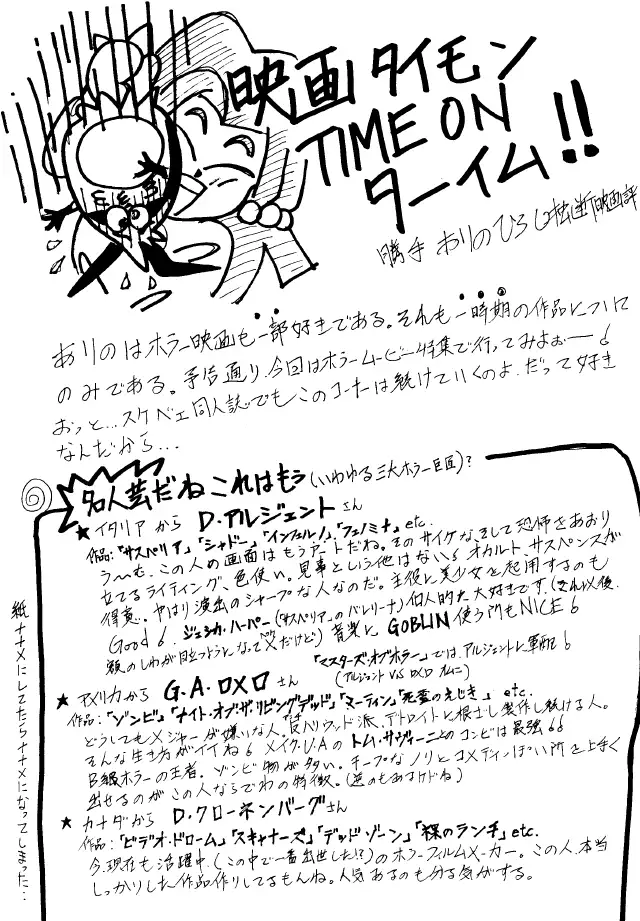 映画タイモン
TIME ON
ターイム!!
勝手 ありのひろし 独断映画評
ありのはホラー映画も一部好きである。それも一時期の作品について
のみである。予告通り、今回はホラームービー特集で行ってみよぉー!
おっと…スケベェ同人誌でもこのコーナーは続けていくのよ、だって好き
なんだから…
名人芸だねこれはもう(いわゆる三大ホラー巨匠)?
★イタリアから D・アルジェントさん
作品:「サスペリア」「シャドー」「インフェルノ」「フェノミナ」etc.
う〜む、この人の画面はもうアートだね。そのサイケな、そして恐怖をあおり
立てるライティング、色使い。見事という他はない! オカルト、サスペンスが
得意。やはり演出のシャープな人なのだ。主役に美少女を起用するのも
Good! ジェシカ・ハーパー(「サスペリア」のバレリーナ)個人的に大好きです。(それ以後、
額のしわが目立つようになって×だけど)音楽に GOBLIN 使う所もNICE!
「マスターズ・オブ・ホラー」では、アルジェントに軍配!
(アルジェント VS ロメロ オムニ)
★アメリカから G.A.ロメロさん
作品:「ゾンビ」「ナイト・オブ・ザ・リビングデッド」「マーティン」「死霊のえじき」etc.
どうしてもメジャーが嫌いな人。反ハリウッド派、デトロイトに根ざし製作し続ける人。
そんな生き方がイイね! メイク・U.Aのトム・サヴィーニとのコンビは最強!!
B級ホラーの王者。ゾンビ物が多い。チープなノリとコメディっぽい所を上手く
出せるのがこの人ならでわの特徴。(逆のもあるけどね)
★カナダから D.クローネンバーグさん
作品:「ビデオ・ドローム」「スキャナーズ」「デッドゾーン」「裸のランチ」etc.
今現在も活躍中。(この中で一番出世した!?)のホラーフィルムメーカー。この人、本当
しっかりした作品作りしてるもんね。人気あるのも分る気がする。
紙ナナメにしてたらナナメになってしまった…